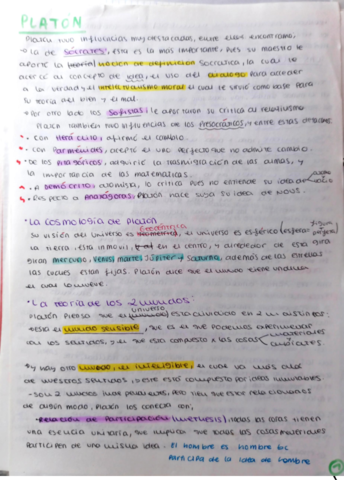 PLATÓN
Platón tuvo influencias muy destacadas, entre ellas encontramos,
• La de Sócrates, ésta es la más importante, pues su maestro le
aporta la noción de definición socrática, la cual le
acercó al concepto de idea, el uso del diálogo para acceder
a la verdad y el intelectualismo moral el cual le sirvió como base para
su teoría del bien y el mal.
• Por otro lado los Sofistas, le aportaron su crítica al relativismo
Platón también tuvo influencias de los Presocráticos, y entre estas
• Con Heráclito, afirmó el cambio.
• Con Parménides, aceptó el uno perfecto que no admite cambio.
• De los Pitagóricos, admitió la transmigración de las almas, y
la importancia de las matemáticas.
• A Demócrito, atomista, lo critica pues no entiende su idea de
• Respecto a Anaxágoras, Platón hace suya su idea de nous.
• La cosmología de Platón
Geocéntrica
Su visión del universo es, el universo es esférico (esfera: figura perfecta)
La tierra, está inmóvil, en el centro, y alrededor de esta gira
giran mercurio, venus, marte, júpiter y saturno, además de las estrellas
las cuales están fijas. Platón dice que el mundo tiene un alma
el cual lo mueve.
• La teoría de los 2 mundos:
universo
Platón piensa que el está dividido en 2 m. distintos:
• está el mundo sensible, que es el que podemos experimentar
con los sentidos, y que está compuesto x las cosas materiales
• y hay otro mundo, el inteligible, el cual va más allá
de nuestros sentidos, y este está compuesto por
- son 2 mundos independientes, pero tienen que estar relacionados
de algún modo, Platón los conecta con:
- Relación de Participación (methexis), todas las cosas tienen
una esencia unitaria, que implica que todas las cosas materiales
participen de una misma idea. El hombre es hombre xc
participa de la idea de hombre